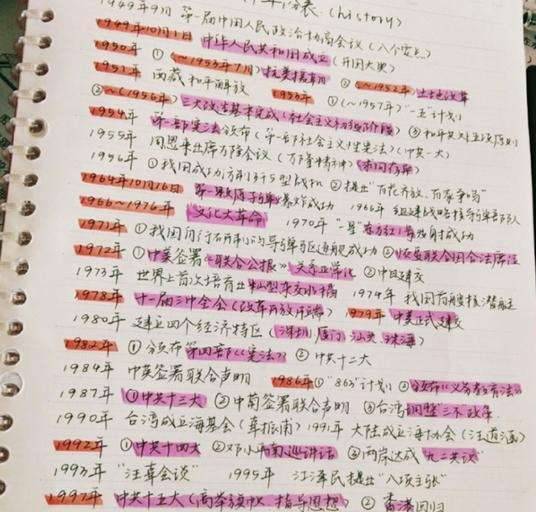 1949年9月 第一届中国人民政治协商会议(八个要点)
1949年10月1日 中华人民共和国成立(开国大典)
1950年 ①(~1953年7月)抗美援朝 ②(~1952年)土地改革
1951年 西藏和平解放 1953年 ①(~1957年)"一五"计划
③~(1956年)三大改造基本完成 ③和平共处五项原则
1954年 第一部宪法颁布(第一部社会主义性宪法)(中共一大)
1955年 周恩来出席万隆会议(万隆精神)求同存异
1956年 ①我国成功 ②提出"百花齐放,百家争鸣"
1964年10月16日 第一颗原子弹爆炸成功 1966年 组建战略核导弹部队
1966~1976年 文化大革命 1970年 "一号"发射成功
1971年 ①我国 成功 ②恢复联合国合法席位
1972年 ①中美签署《联合公报》关系正常化 ②中日建交
1973年 世界上首次培育出籼型杂交水稻 1974年 我国首艘核潜艇
1978年 十一届三中全会(改革开放) 1979年 中美正式建交
1980年 建立四个经济特区(深圳 厦门 汕头 珠海)
1982年 ①颁布第四部《宪法》 ②中共十二大
1984年 中英签署联合声明 1986年①"863"计划 ②颁布《义务教育法》
1987年 ①中共十三大 ②中葡签署联合声明 ③台湾调整"三不"政策
1990年 台湾成立海基会(辜振甫) 1991年 大陆成立海协会(汪道涵)
1992年 ①中共十四大 ②邓小平南巡讲话 ③两岸达成"九二共识"
1993年 "汪辜会谈" 1995年 江泽民提出"八项主张"
1997年 中共十五大(高举旗帜,指导思想) ②香港回归